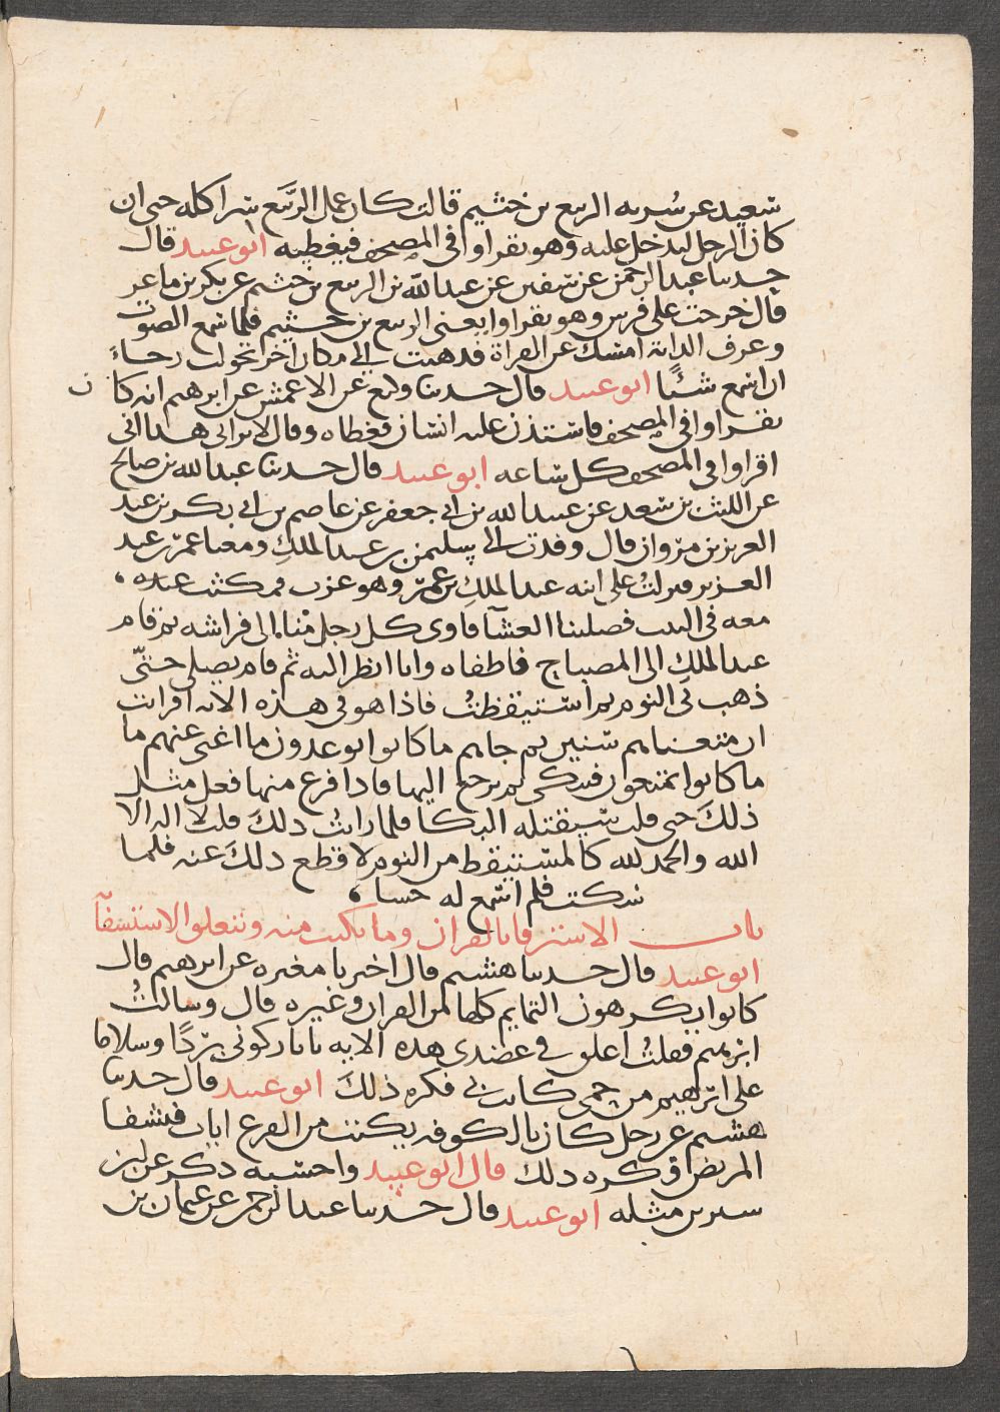 سعيد عن سرية الربيع بن خثيم قالت كان عمل الربيع سرا كله حتى ان
كان الرجل ليدخل عليه وهو يقرا وا في المصحف فيغطيه ابو عبيد قال
حدثنا عبد الرحمن عن سفين عن عبد الله بن الربيع بن خثيم عن بكر بن ماعر
قال خرجت على فرس وهو يقرا وا يعني الربيع بن خثيم فلما سمع الصوت
وعرف الدابة امسك عن القراة فذهبت الى مكان اخر تحولت رجاء
ان اسمع شئا ابو عبيد قال حدثنا وكيع عن الاعمش عن ابرهيم انه كان
يقرا وا في المصحف فاستذن عليه انسان فغطاه وقال لا يراني هذا اني
اقرا وا في المصحف كل ساعه ابو عبيد قال حدثنا عبد الله بن صالح
عن الليث بن سعد عن عبيد الله بن ابي جعفر عن عاصم بن ابي بكر بن عبد
العزيز بن مروان قال وفدت الى سليمن بن عبد الملك ومعنا عمر بن عبد
العزيز فنزلت على ابنه عبد الملك بن عمر وهو عزب فمكثت عنده
معه في البيت فصلينا العشآ فاوى كل رجل منا الى فراشه ثم قام
عبد الملك الى المصباح فاطفاه وانا انظر اليه ثم قام يصلي حتى
ذهب بي النوم ثم استيقظت فاذا هو في هذه الايه افرايت
ان متعناهم سنين ثم جاهم ما كانوا يوعدون ما اغنى عنهم ما
ما كانوا يمتعون فبكى ثم يرجع اليها فاذا فرغ منها فعل مثل
ذلك حتى قلت سيقتله البكا فلما رايت ذلك قلت لا اله الا
الله والحمد لله كالمستيقظ من النوم لا قطع ذلك عنه فلما
سكت فلم اسمع له حسا
باب الاسترقا بالقران وما يكتب منه وتتعلق الاستشفآ
ابو عبيد قال حدثنا هشيم قال اخبرنا مغيره عن ابرهيم قال
كانوا يكرهون التمايم كلها من القران وغيره قال وسالت
ابرهيم فقلت اعلق في عضدي هذه الايه يا نار كوني بردا وسلاما
على ابرهيم من حمى كانت بي فكره ذلك ابو عبيد قال حدثنا
هشيم عن رجل كان بالكوفه يكتب من الفزع ايات فيشفا
المريض فكره ذلك قال ابو عبيد واحسبه ذكر عن ابن
سيرين مثله ابو عبيد قال حدثنا عبد الرحمن عن عثمان بن